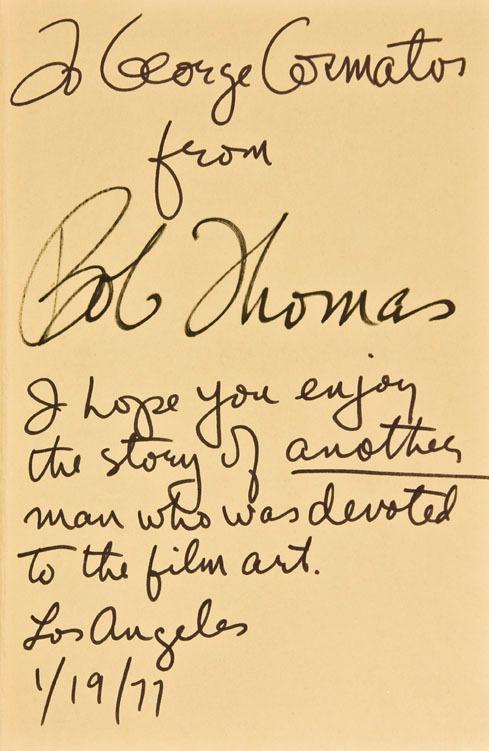 To George Cosmatos
from
Bob Thomas
I hope you enjoy
the story of another
man who was devoted
to the film art.
Los Angeles
1/19/77